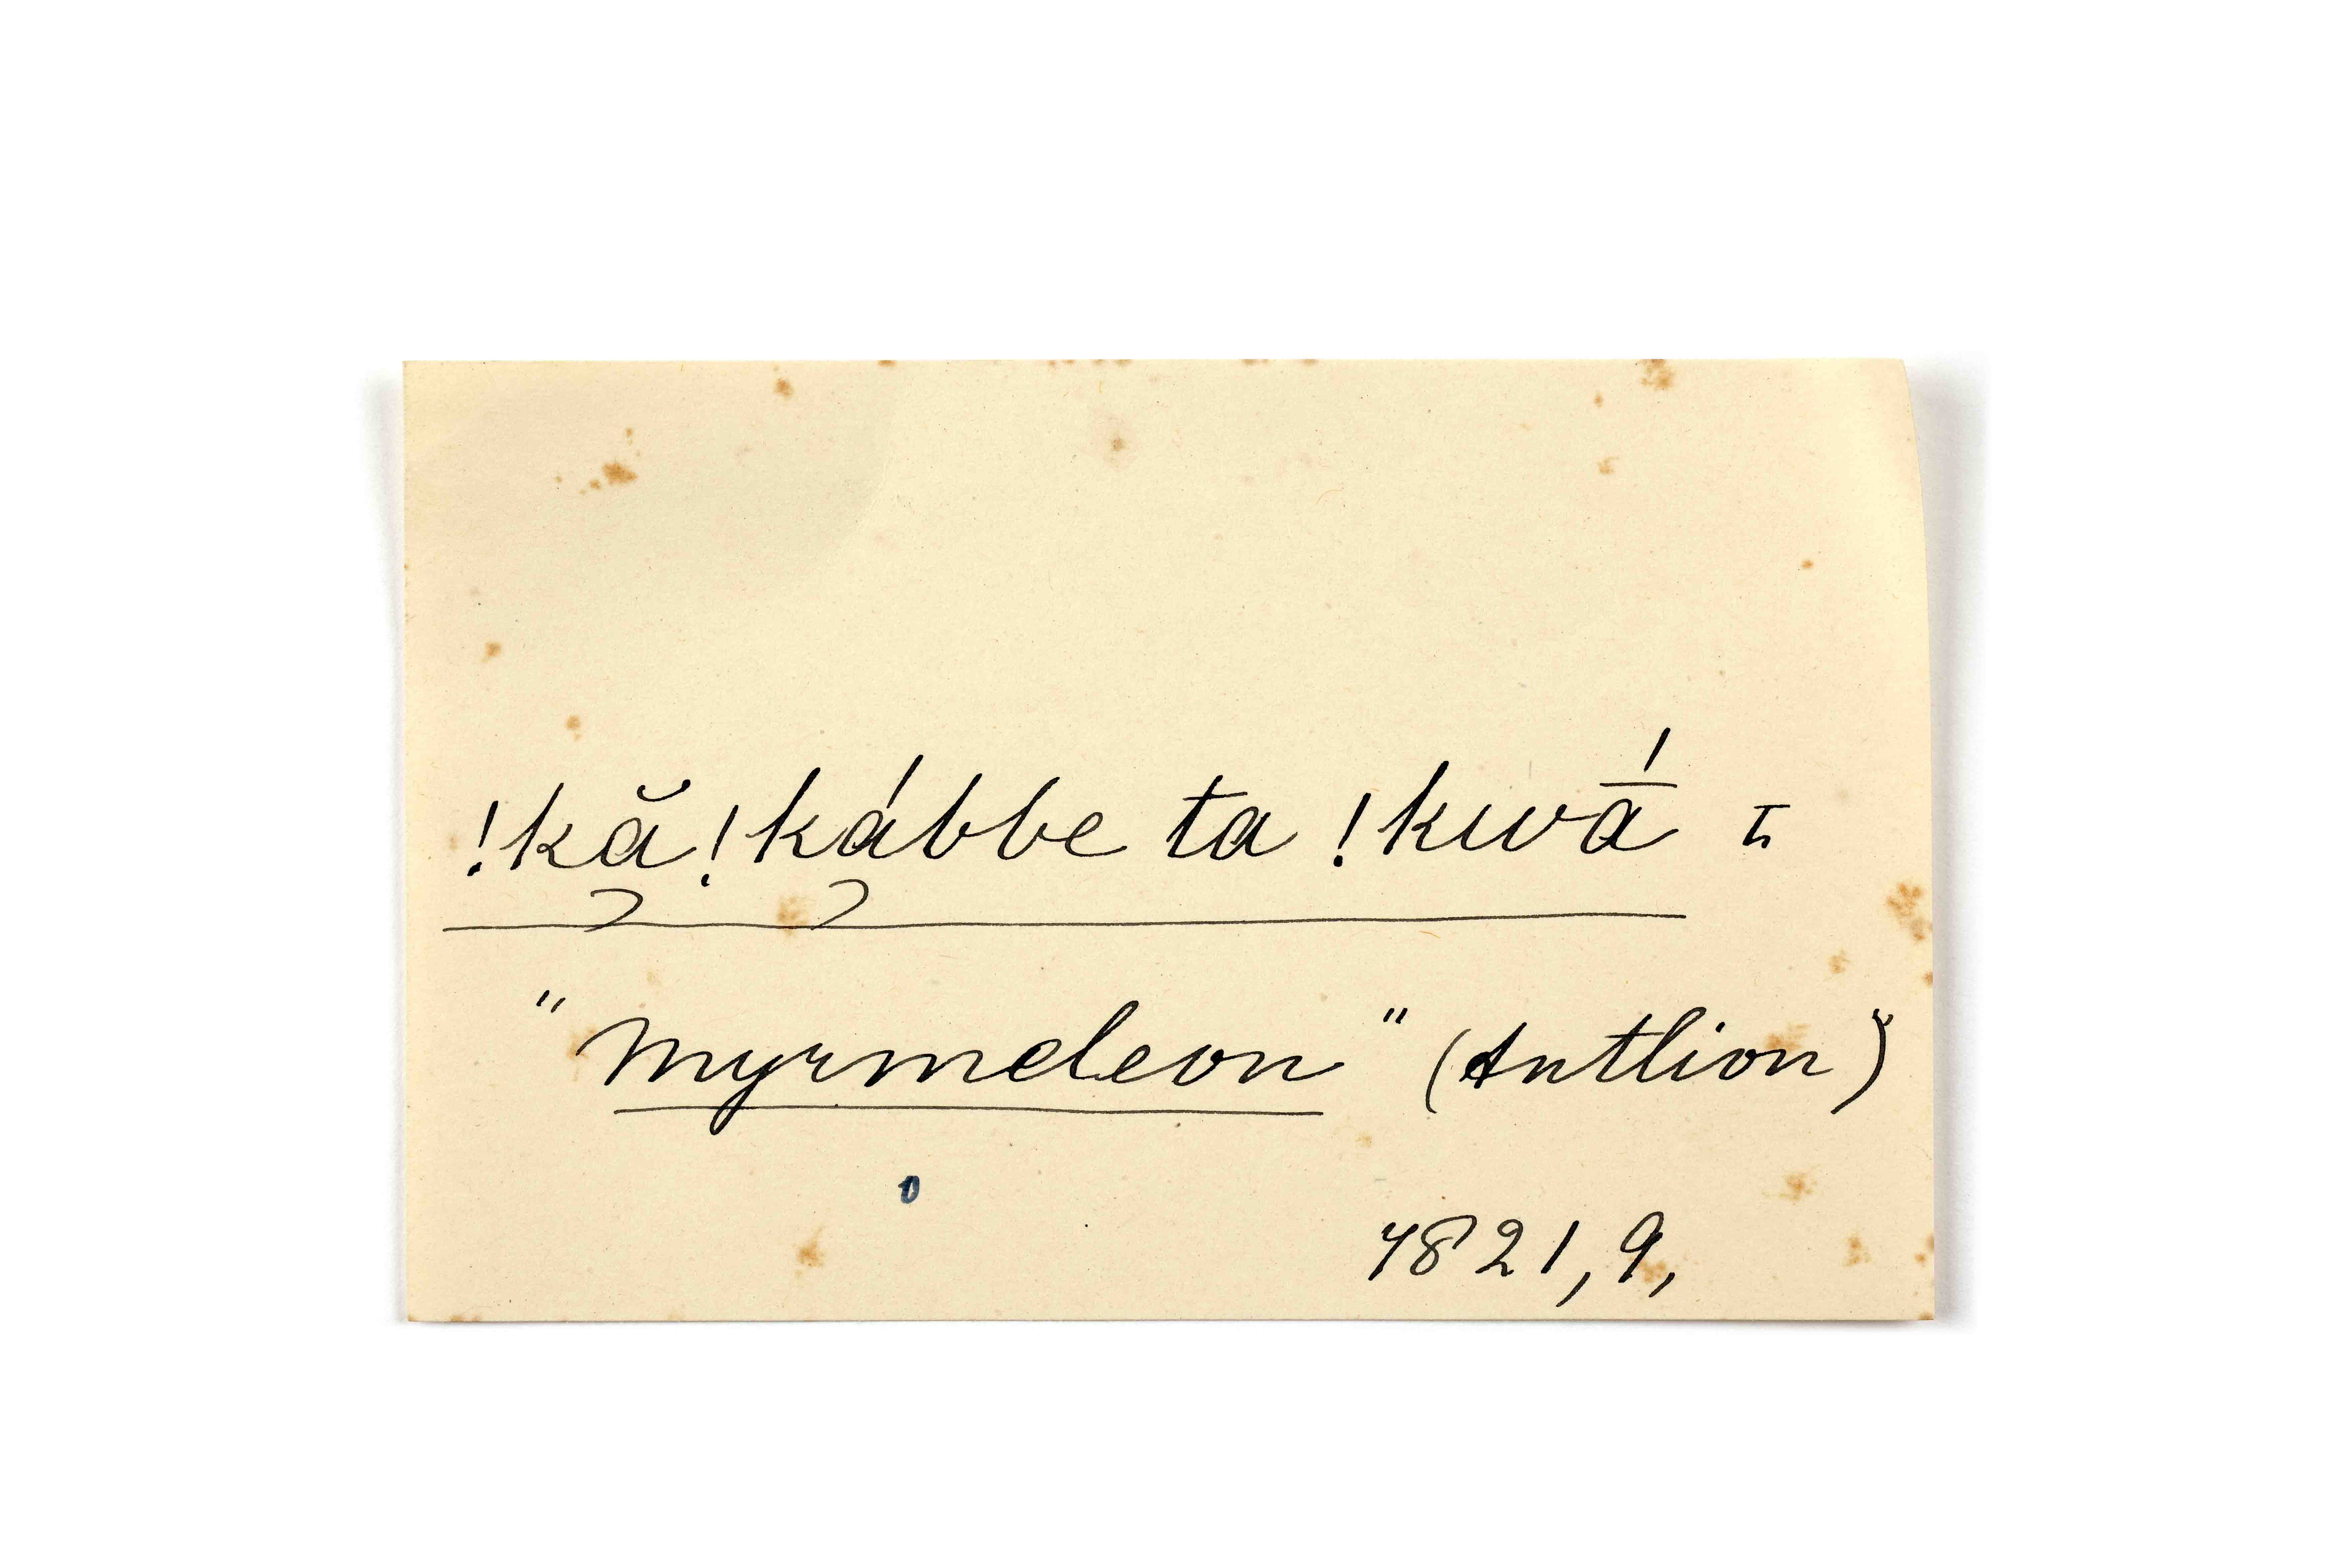 !kă!kábbe ta !kwā́ =
"Myrmeleon" (Antlion)
0
4821,9,